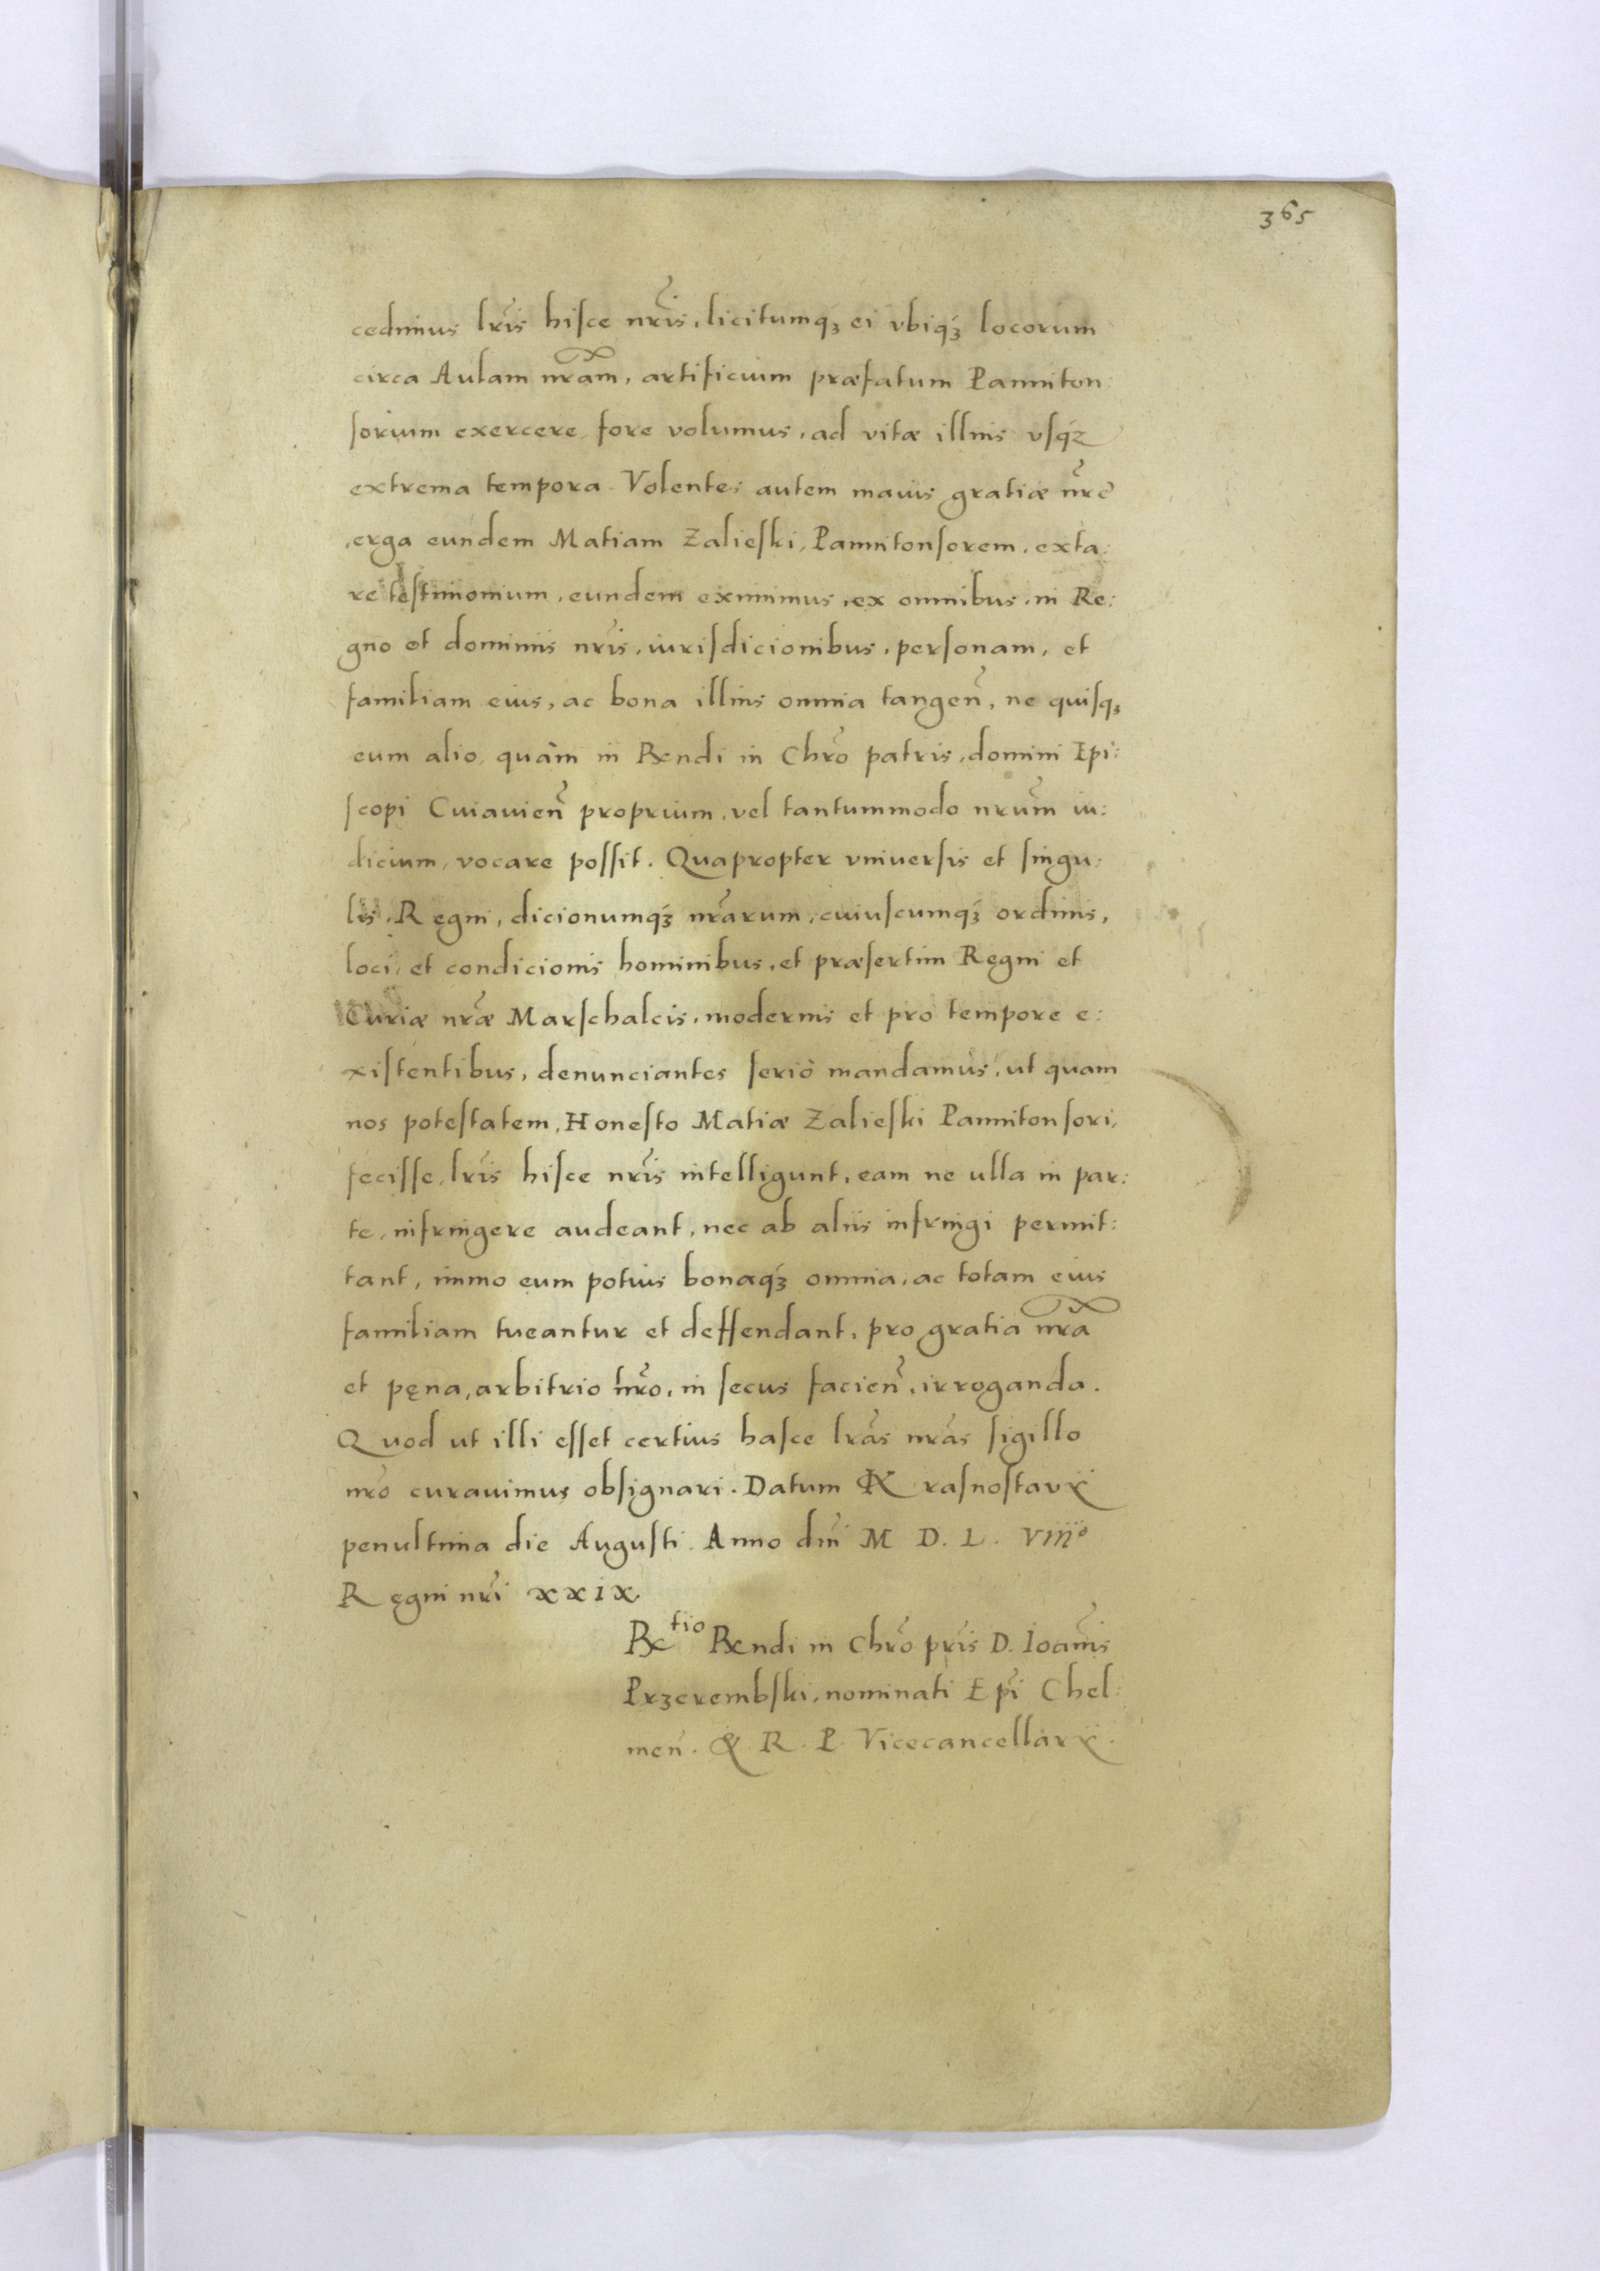 365
cedimus lr̃is hisce nr̃is, licitumq3 ei vbiq3 locorum
circa Aulam nrãm, artificium præfatum Panniton:
sorium exercere, fore volumus, ad vitæ illius vsq3
extrema tempora. Volentes autem maius gratiæ nrẽ
erga eundem Matiam Zalieski, Pannitonsorem, exta:
re testimonium, eundem eximimus, ex omnibus, in Re:
gno et dominiis nr̃is, iurisdicionibus, personam, et
familiam eius, ac bona illius omnia tangeñ, ne quisq3
eum alio, quàm in Rendi in Chrõ patris, domini Epi:
scopi Cuiauieñ proprium, vel tantummodo nrũm iu:
dicium, vocare possit. Quapropter vniuersis et singu:
lis, Ręgni, dicionumq3 nrãrum, cuiuscumq3 ordinis,
loci, et condicionis hominibus, et præsertim Ręgni et
Curiæ nrãæ Marschalcis, modernis et pro tempore e:
xistentibus, denunciantes seriò mandamus, ut quam
nos potestatem, Honesto Matiæ Zalieski Pannitonsori,
fecisse, lr̃is hisce nr̃is intelligunt, eam ne ulla in par:
te, infringere audeant, nec ab aliis infringi permit:
tant, immo eum potius bonaq3 omnia, ac totam eius
familiam tueantur et deffendant, pro gratia nrã
et pęna, arbitrio nrõ, in secus facieñ, irroganda.
Quod ut illi esset certius hasce lrãs nrãs sigillo
nrõ curauimus obsignari. Datum Krasnostaviæ
penultima die Augusti. Anno dñi M D. L. VIIIº
Ręgni nr̃i XXIX.
Retio Rendi in Chrõ pr̃is D. Ioañis
Przerembski, nominati Ep̃i Chel:
meñ. & R. P. Vicecancellarij.